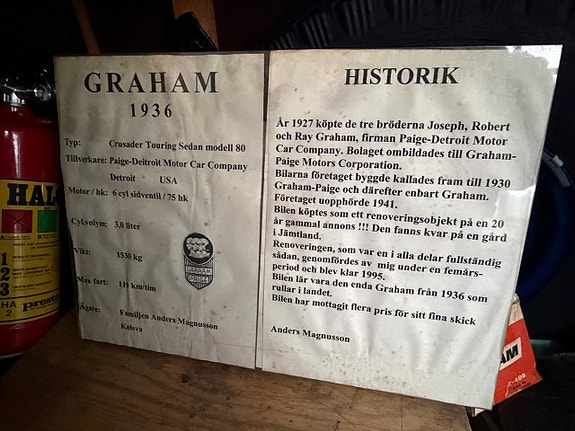 GRAHAM
1936
Typ: Crusader Touring Sedan modell 80
Tillverkare: Paige-Deitroit Motor Car Company
Detroit USA
Motor / hk: 6 cyl sidventil / 75 hk
Cyl.volym: 3,0 liter
Vikt: 1530 kg
Max fart: 118 km/tim
Ägare: Familjen Anders Magnusson
Kolsva
GRAHAM
HISTORIK
År 1927 köpte de tre bröderna Joseph, Robert
och Ray Graham, firman Paige-Detroit Motor
Car Company. Bolaget ombildades till Graham-
Paige Motors Corporation.
Bilarna företaget byggde kallades fram till 1930
Graham-Paige och därefter enbart Graham.
Företaget uopphörde 1941.
Bilen köptes som ett renoveringsobjekt på en 20
år gammal annons !!! Den fanns kvar på en gård
i Jämtland.
Renoveringen, som var en i alla delar fullständig
sådan, genomfördes av mig under en femårs-
period och blev klar 1995.
Bilen lär vara den enda Graham från 1936 som
rullar i landet.
Bilen har mottagit flera pris för sitt fina skick
Anders Magnusson
1
2
3
HA
2